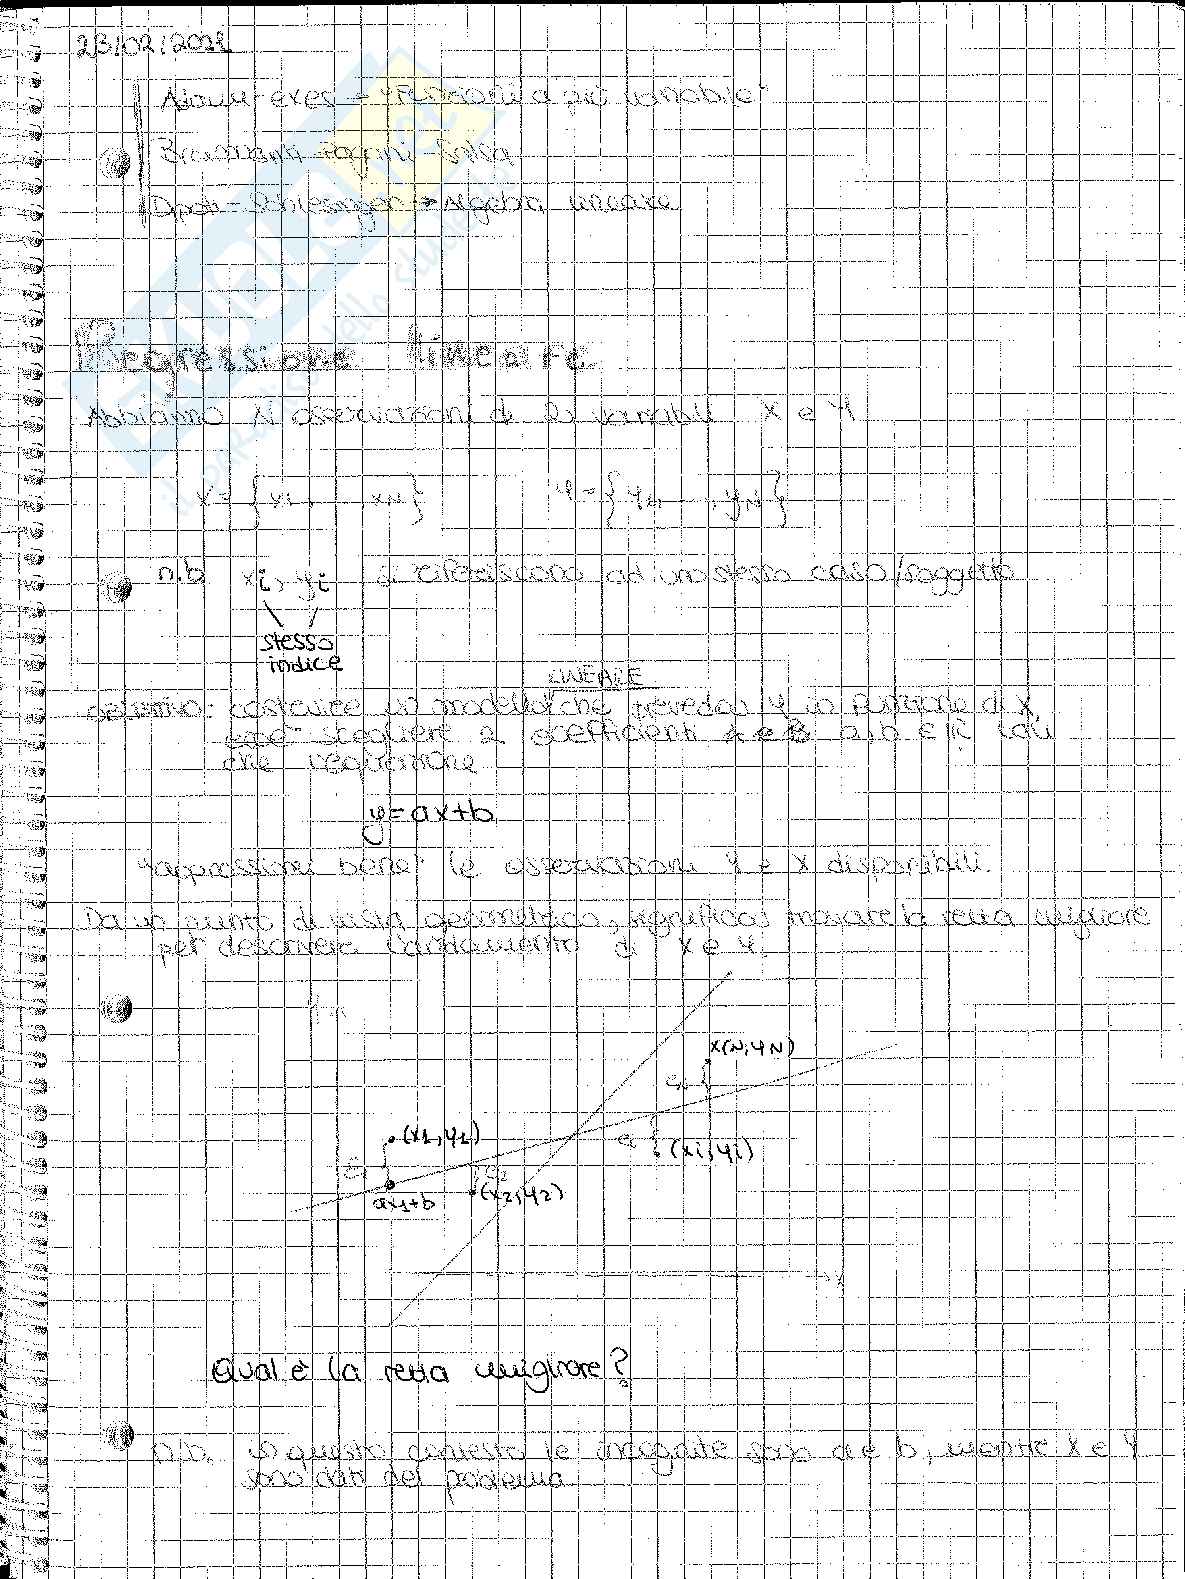 23/02/2021
"Funzioni a più variabile"
Pagini-Salsa
Schlesinger → Algebra lineare
Regressione lineare
Abbiamo N osservazioni di 2 variabili X e Y
X = { x1, xN }
Y = { y1, yN }
n.b xi, yi si riferiscono ad uno stesso caso/soggetto
stesso
indice
LINEARE
OBIETTIVO: costruire un modello che preveda Y in funzione di X,
cioè scegliere 2 coefficienti a, b ∈ R tali
che l'equazione
y=ax+b
"approssimi bene" le osservazioni Y e X disponibili.
Da un punto di vista geometrico, significa trovare la retta migliore
per descrivere l'andamento di X e Y.
Y
x(N, yN)
eN
(x1, y1)
ei
(xi, yi)
e1
e2
ax1+b
(x2, y2)
x
Qual è la retta migliore?
n.b. in questo contesto le incognite sono a e b, mentre X e Y
sono dati del problema